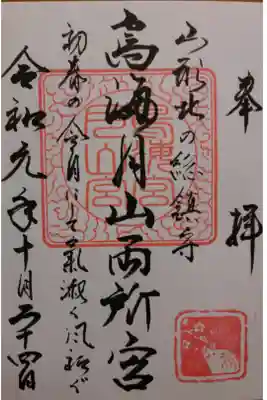 奉拝
山形北の総鎮守
鳥海月山両所宮
初春の令月にして氣淑く風和ぐ
令和元年十月二十四日